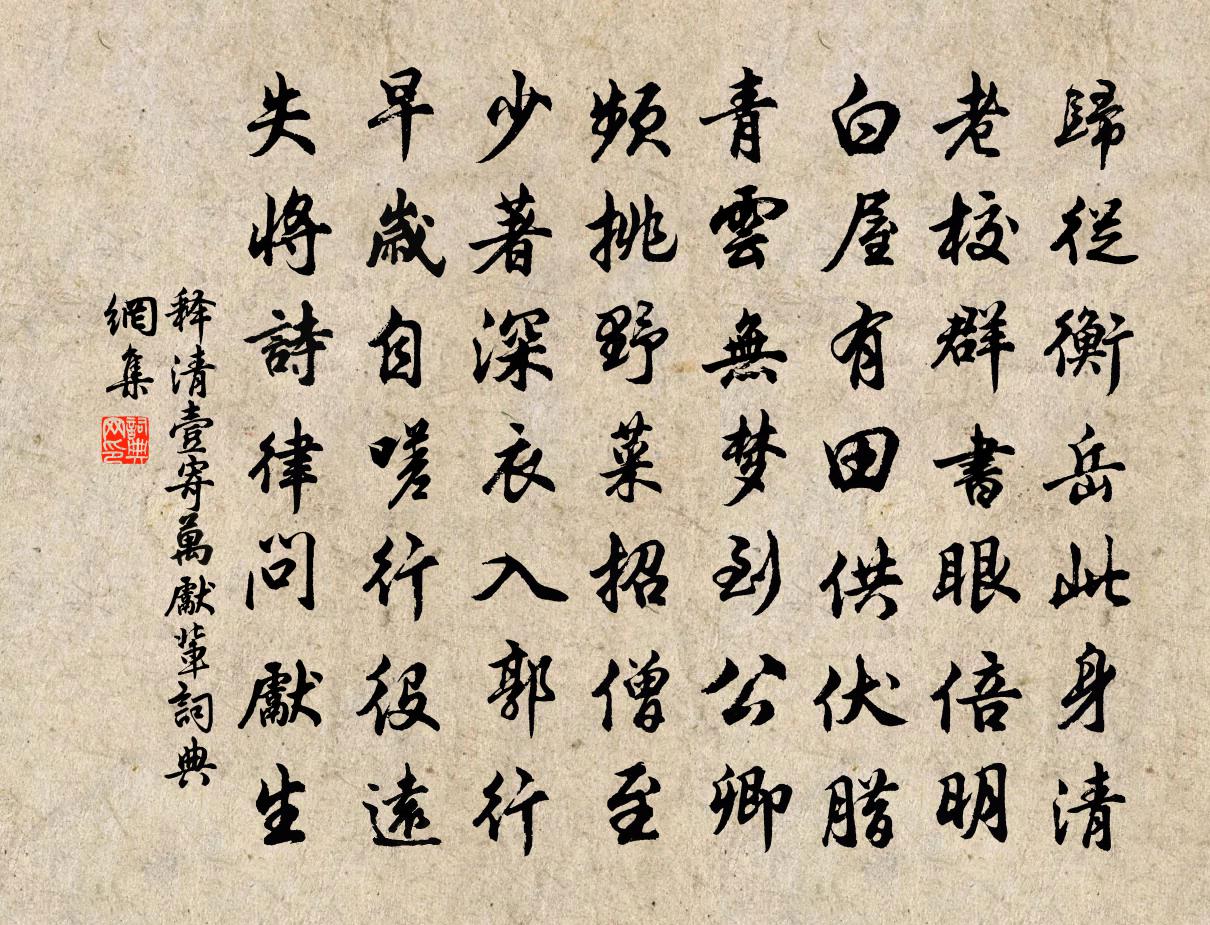 歸從衡岳此身清
老校群書眼倍明
白屋有田供伏腊
青雲無梦到公卿
頻挑野菜招僧至
少著深衣入郭行
早歲自嗟行役遠
失將詩律問獻生
释清壹寄萬獻輩詞典
網集
詞典
网印